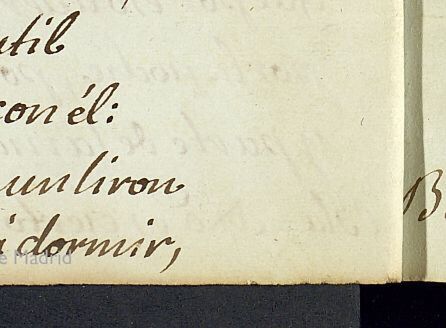 util
con él:
un liron
dormir,
e Madrid
B